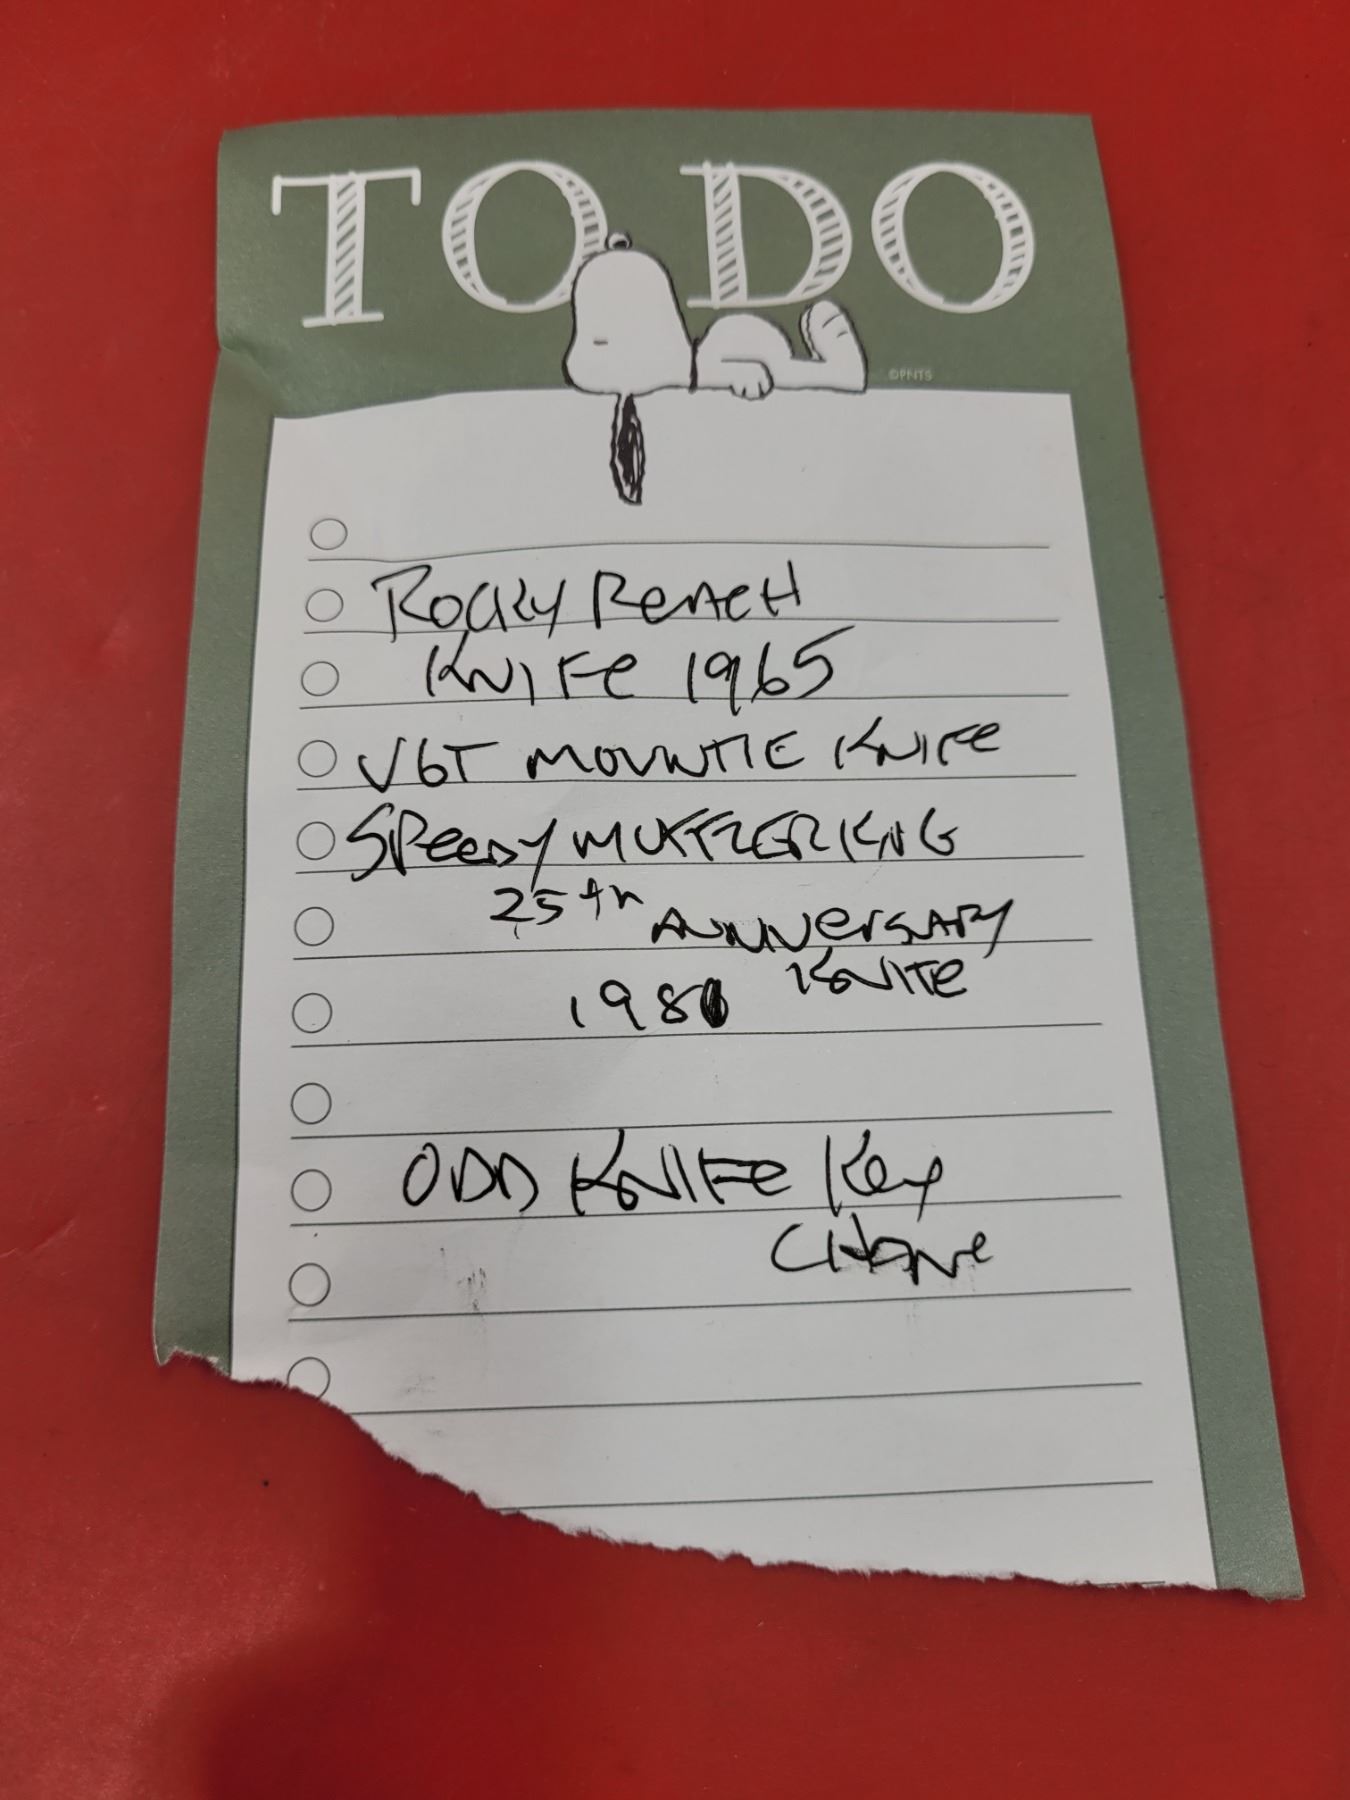 TO DO
©PNTS
ROCKY REACH
KNIFE 1965
VGT MOUNTIE KNIFE
SPeeDY MUFFLER KING
25th ANNIVERSARY
KNIFE
1981
ODD KNIFe Key
CHANe